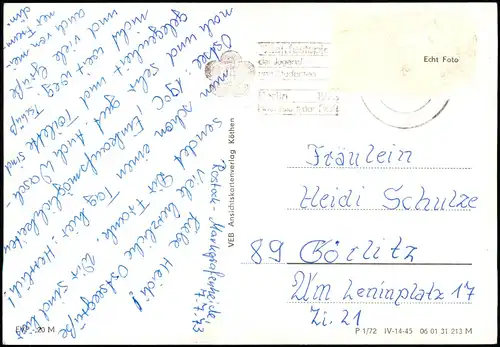 Rostock-Markgrafenheide
7.7.73
Liebe Heidi!
Viele herzliche Ostseegrüße
sendet Dir Frauke. Wir sind
nun schon einen Tag hier
Ostsee 19°C, Herrlich!
und sehr gut Einkaufsmöglichkeiten
Auch Wasch-
und Toilette sind
nicht weit weg
und viele Grüße
auch von
Tschüß
Echt Foto
der Jugend
und Studenten
Berlin 1973
VEB Ansichtskartenverlag Köthen
Fräulein
Heidi Schulze
89 Görlitz
Am Leninplatz 17
Zi. 21
EVP -,20 M
P 1/72 IV-14-45 06 01 31 213 M